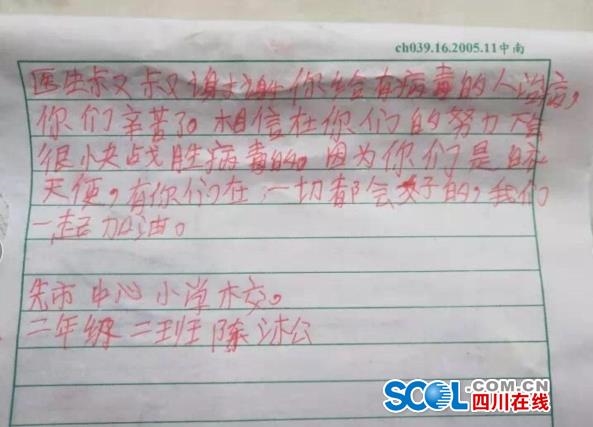 ch039.16.2005.11中南
医生叔叔谢谢你给有病毒的人治病,
你们辛苦了。相信在你们的努力下
很快战胜病毒的。因为你们是白衣
天使,有你们在,一切都会好的,我们
一起加油。
先市中心小学校。
二年级二班陈沐
SCOL.COM.CN
四川在线